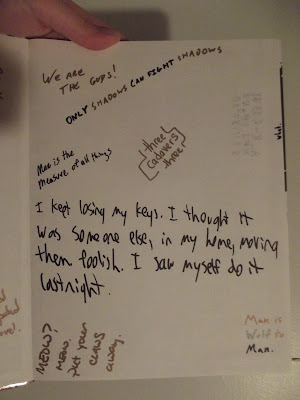 We are
the Gods!
ONLY SHADOWS CAN FIGHT SHADOWS
three
cadavers
three
Man is the
measure of all things
I kept losing my keys. I thought it
was someone else, in my home, moving
them foolish. I saw myself do it
last night.
MEOW?
MEOW.
Put your
CLAWS
away.
Man is
Wolf to
Man.